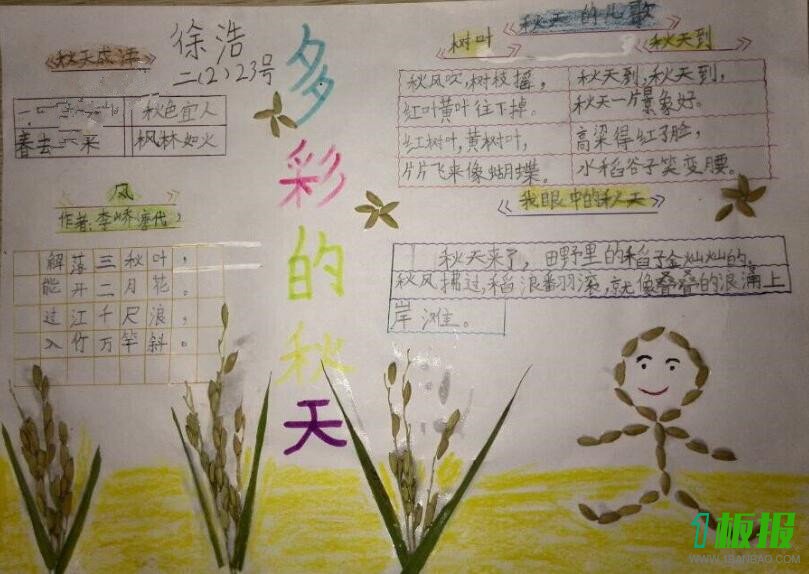 徐浩
二(2)23号
多彩的秋天
秋天成语
秋色宜人
春去 来 枫林如火
风
作者:李峤(唐代)
解落三秋叶,
能开二月花。
过江千尺浪,
入竹万竿斜。
秋天的儿歌
树叶
秋风吹,树枝摇,
红叶黄叶往下掉。
红树叶,黄树叶,
片片飞来像蝴蝶。
秋天到
秋天到,秋天到,
秋天一片景象好。
高梁得红了脸,
水稻谷子笑变腰。
我眼中的秋天
秋天来了,田野里的稻子金灿灿的。
秋风拂过,稻浪翻滚,就像叠叠的浪涌上
岸滩。
1板报
WWW.1BANBAO.COM